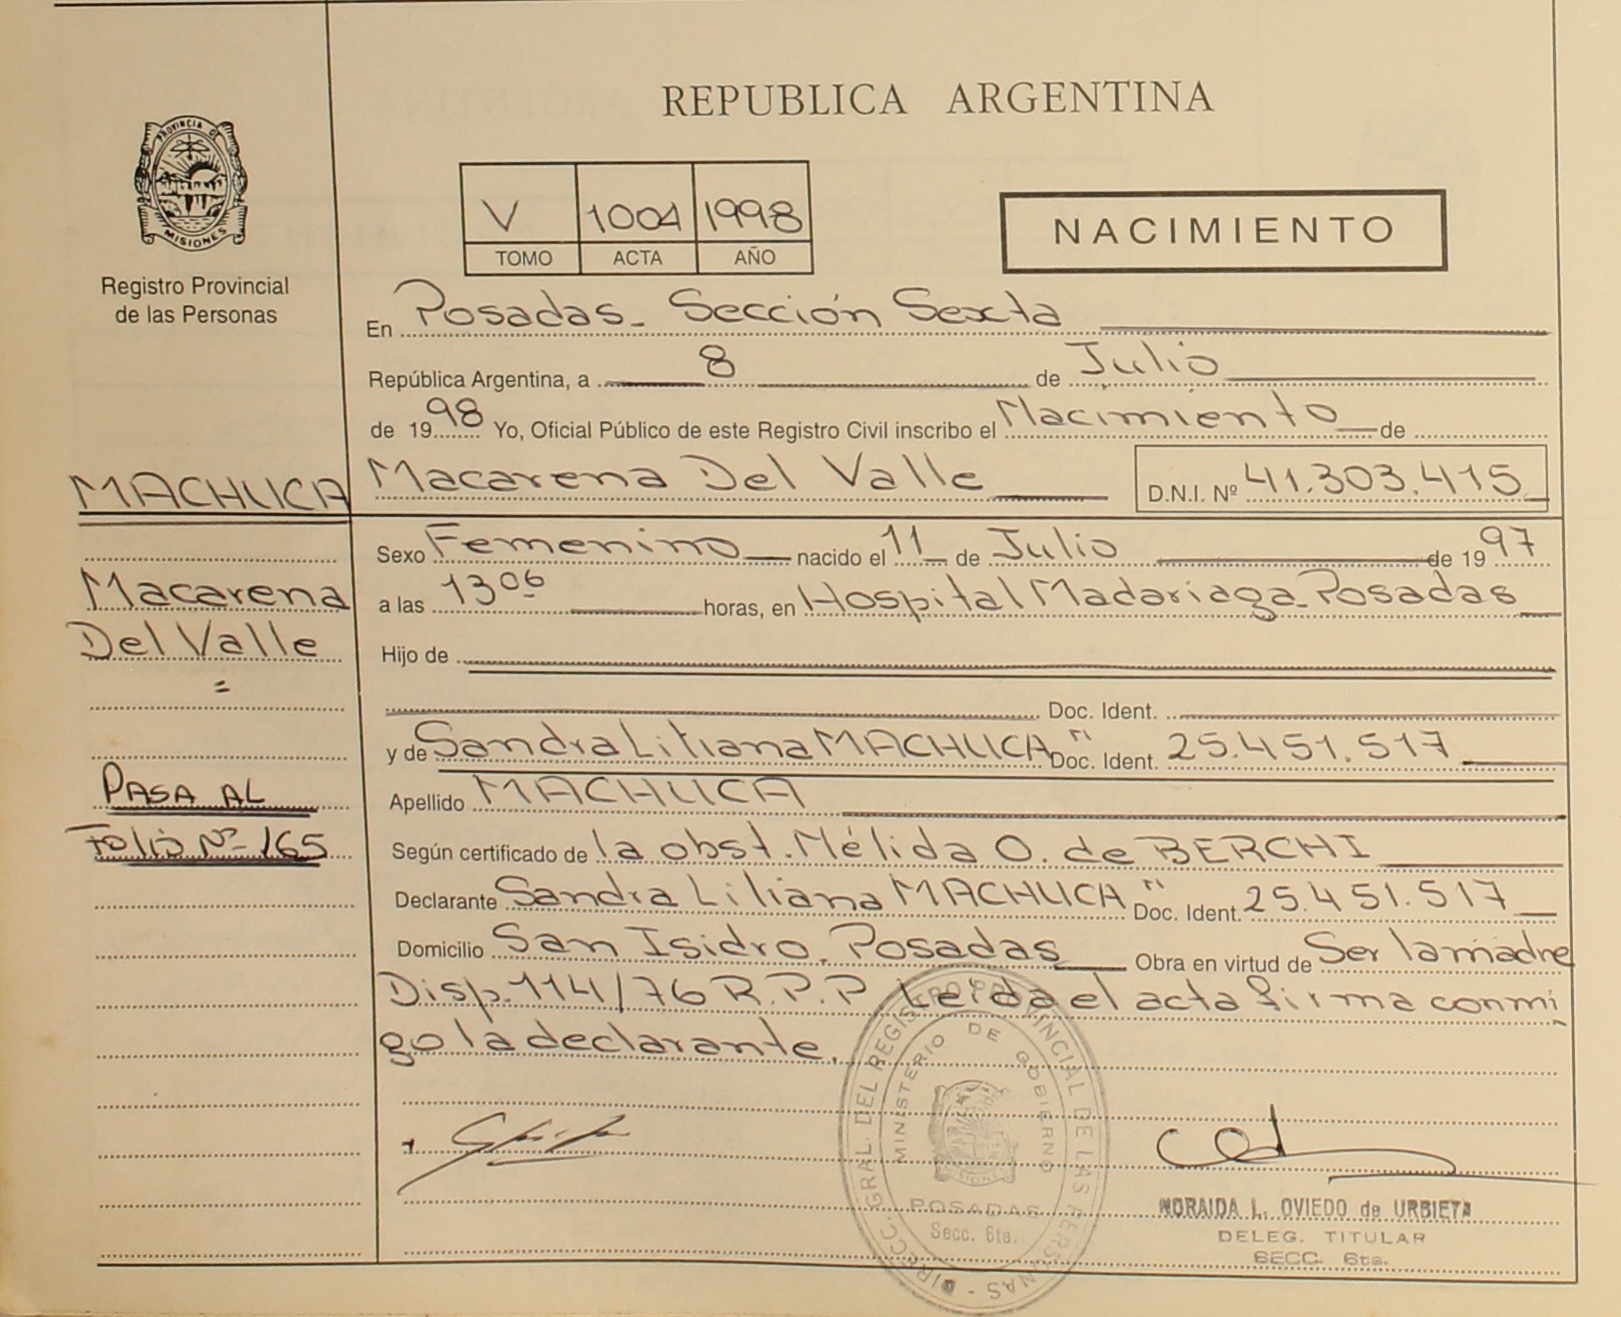 REPUBLICA ARGENTINA
PROVINCIA DE
MISIONES
Registro Provincial
de las Personas
V 1004 1998
TOMO ACTA AÑO
NACIMIENTO
En Posadas - Sección Sexta
República Argentina, a 8 de Julio
de 1998 Yo, Oficial Público de este Registro Civil inscribo el Nacimiento de
MACHUCA
Macarena Del Valle D.N.I. Nº 41.303.415
Sexo Femenino nacido el 11 de Julio de 1997
Macarena
a las 1306 horas, en Hospital Madariaga - Posadas
Del Valle
=
Hijo de
Doc. Ident.
y de Sandra Liliana MACHUCA " Doc. Ident. 25.451.517
PASA AL
Apellido MACHUCA
Folio Nº - 165
Según certificado de la obst. Nélida O. de BERCHI
Declarante Sandra Liliana MACHUCA " Doc. Ident. 25.451.517
Domicilio San Isidro. Posadas Obra en virtud de Ser la madre
Disp. 114/76 R.P.P. Leída el acta firma conmi-
go la declarante.
DIRECC. GRAL. DEL REGISTRO PROVINCIAL DE LAS PERSONAS -
MINISTERIO DE GOBIERNO
MISIONES
POSADAS
Secc. 6ta.
NORAIDA L. OVIEDO de URBIETA
DELEG. TITULAR
SECC. 6ta.